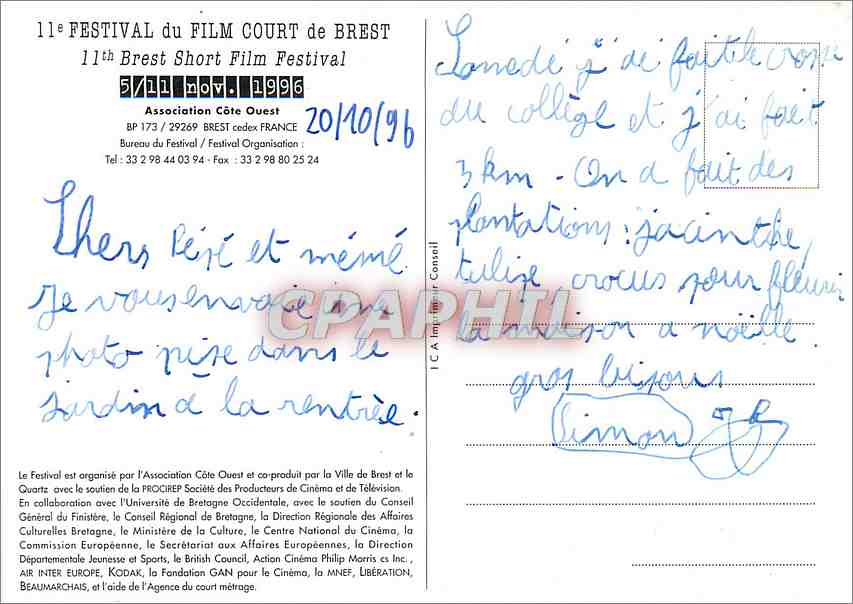 11e FESTIVAL du FILM COURT de BREST
11th Brest Short Film Festival
5/11 nov. 1996
Association Côte Ouest
BP 173 / 29269 BREST cedex FRANCE
Bureau du Festival / Festival Organisation :
Tel : 33 2 98 44 03 94 - Fax : 33 2 98 80 25 24
20/10/96
Chers pépé et mémé.
Je vous envoie une
photo prise dans le
jardin à la rentrée.
Le Festival est organisé par l'Association Côte Ouest et co-produit par la Ville de Brest et le
Quartz avec le soutien de la PROCIREP Société des Producteurs de Cinéma et de Télévision.
En collaboration avec l'Université de Bretagne Occidentale, avec le soutien du Conseil
Général du Finistère, le Conseil Régional de Bretagne, la Direction Régionale des Affaires
Culturelles Bretagne, le Ministère de la Culture, le Centre National du Cinéma, la
Commission Européenne, le Secrétariat aux Affaires Européennes, la Direction
Départementale Jeunesse et Sports, le British Council, Action Cinéma Philip Morris cs Inc.,
AIR INTER EUROPE, KODAK, la Fondation GAN pour le Cinéma, la MNEF, LIBÉRATION,
BEAUMARCHAIS, et l'aide de l'Agence du court métrage.
I C A Imprimeur Conseil
CPAPHIL
Samedi j'ai fait le cross
du collège et j'ai fait
3 km - On a fait des
plantations : jacinthe,
tulipe, crocus pour fleurir
la maison a noëlle.
gros bisous
Simon